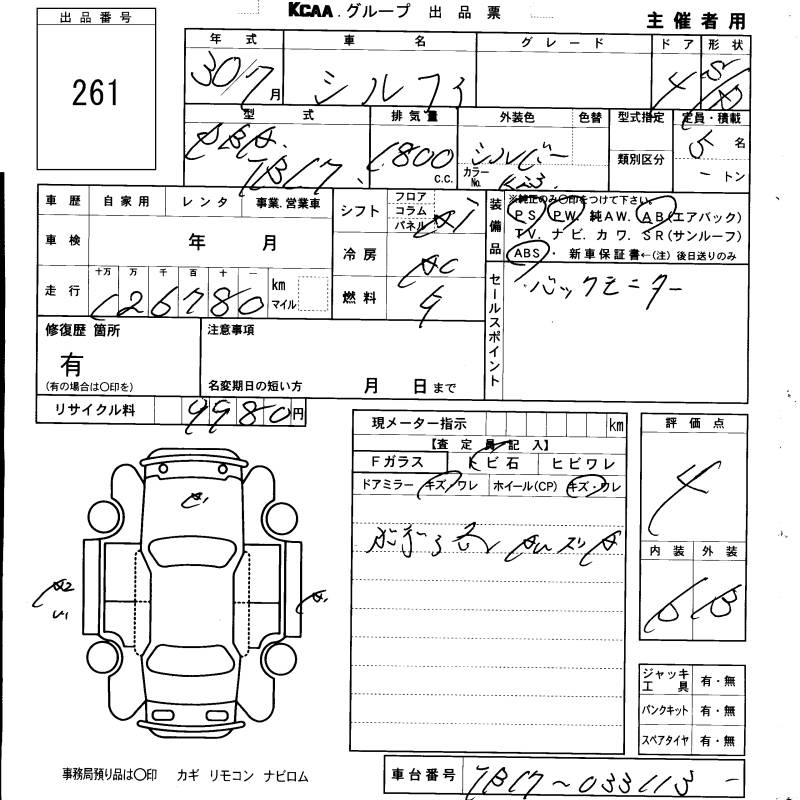 KCAA グループ 出品票
主催者用
出品番号
261
年式 車名 グレード ドア 形状
30/7月 シルフィ 4 S/D
型式 排気量 外装色 色替 型式指定 定員・積載
DBA TB17 1800 c.c. シルバー カラーNo. K23 類別区分 5名
- トン
車歴 自家用 レンタ 事業.営業車
車検 年 月
走行 十万 万 千 百 十 一 km マイル
126780
シフト フロア コラム パネル AT
冷房 AC
燃料 G
装備品 ※純正のみ〇印をつけて下さい。
PS PW. 純AW. AB(エアバック)
TV. ナビ. カワ. SR(サンルーフ)
ABS・ 新車保証書←(注) 後日送りのみ
セールスポイント
バックモニター
修復歴 箇所
有
(有の場合は〇印を)
注意事項
名変期日の短い方 月 日まで
リサイクル料 9980円
現メーター指示 km
【査定員記入】
Fガラス トビ石 ヒビワレ
ドアミラー キズ・ワレ ホイール(CP) キズ・ワレ
評価点
4
内装 外装
B B
A1
A2
U1
A1
ジャッキ工具 有・無
パンクキット 有・無
スペアタイヤ 有・無
事務局預り品は〇印 カギ リモコン ナビロム
車台番号 TB17~033113 -